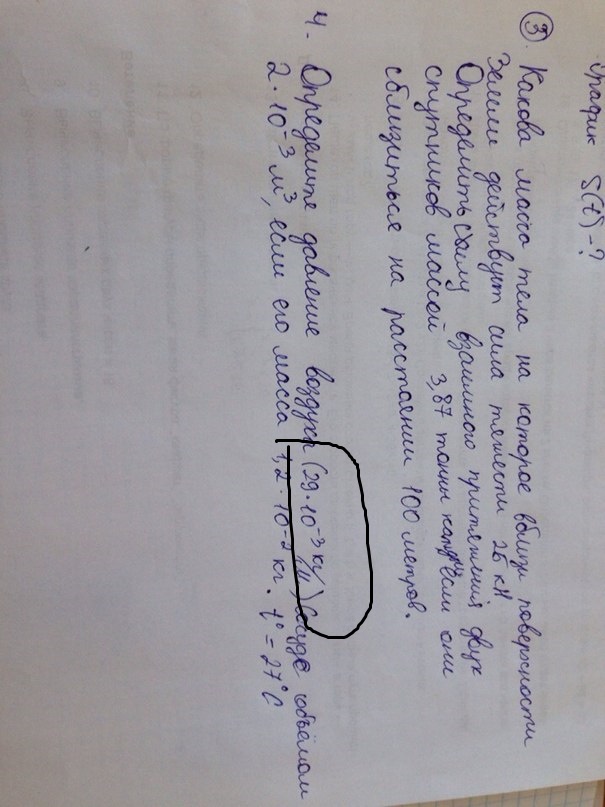 график S(t) - ?
③. Какова масса тела на которое вблизи поверхности
Земли действует сила тяжести 25 кН
Определить силу взаимного притяжения двух
спутников массой 3,87 тонны каждый если они
сблизиться на расстоянии 100 метров.
4. Определите давление воздуха (29·10⁻³ кг/ ) сосуде объёмом
2·10⁻³ м³, если его масса 1,2·10⁻² кг. t° = 27°С